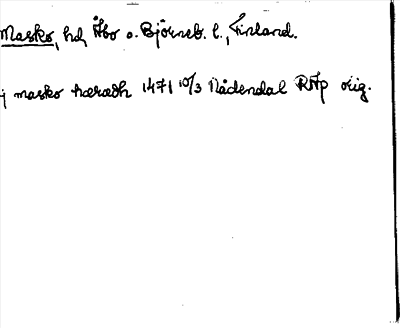 Masko, hd, Åbo o. Björneb. l., Finland.
j masko hæradh 1471 10/3 Nådendal RAp orig.